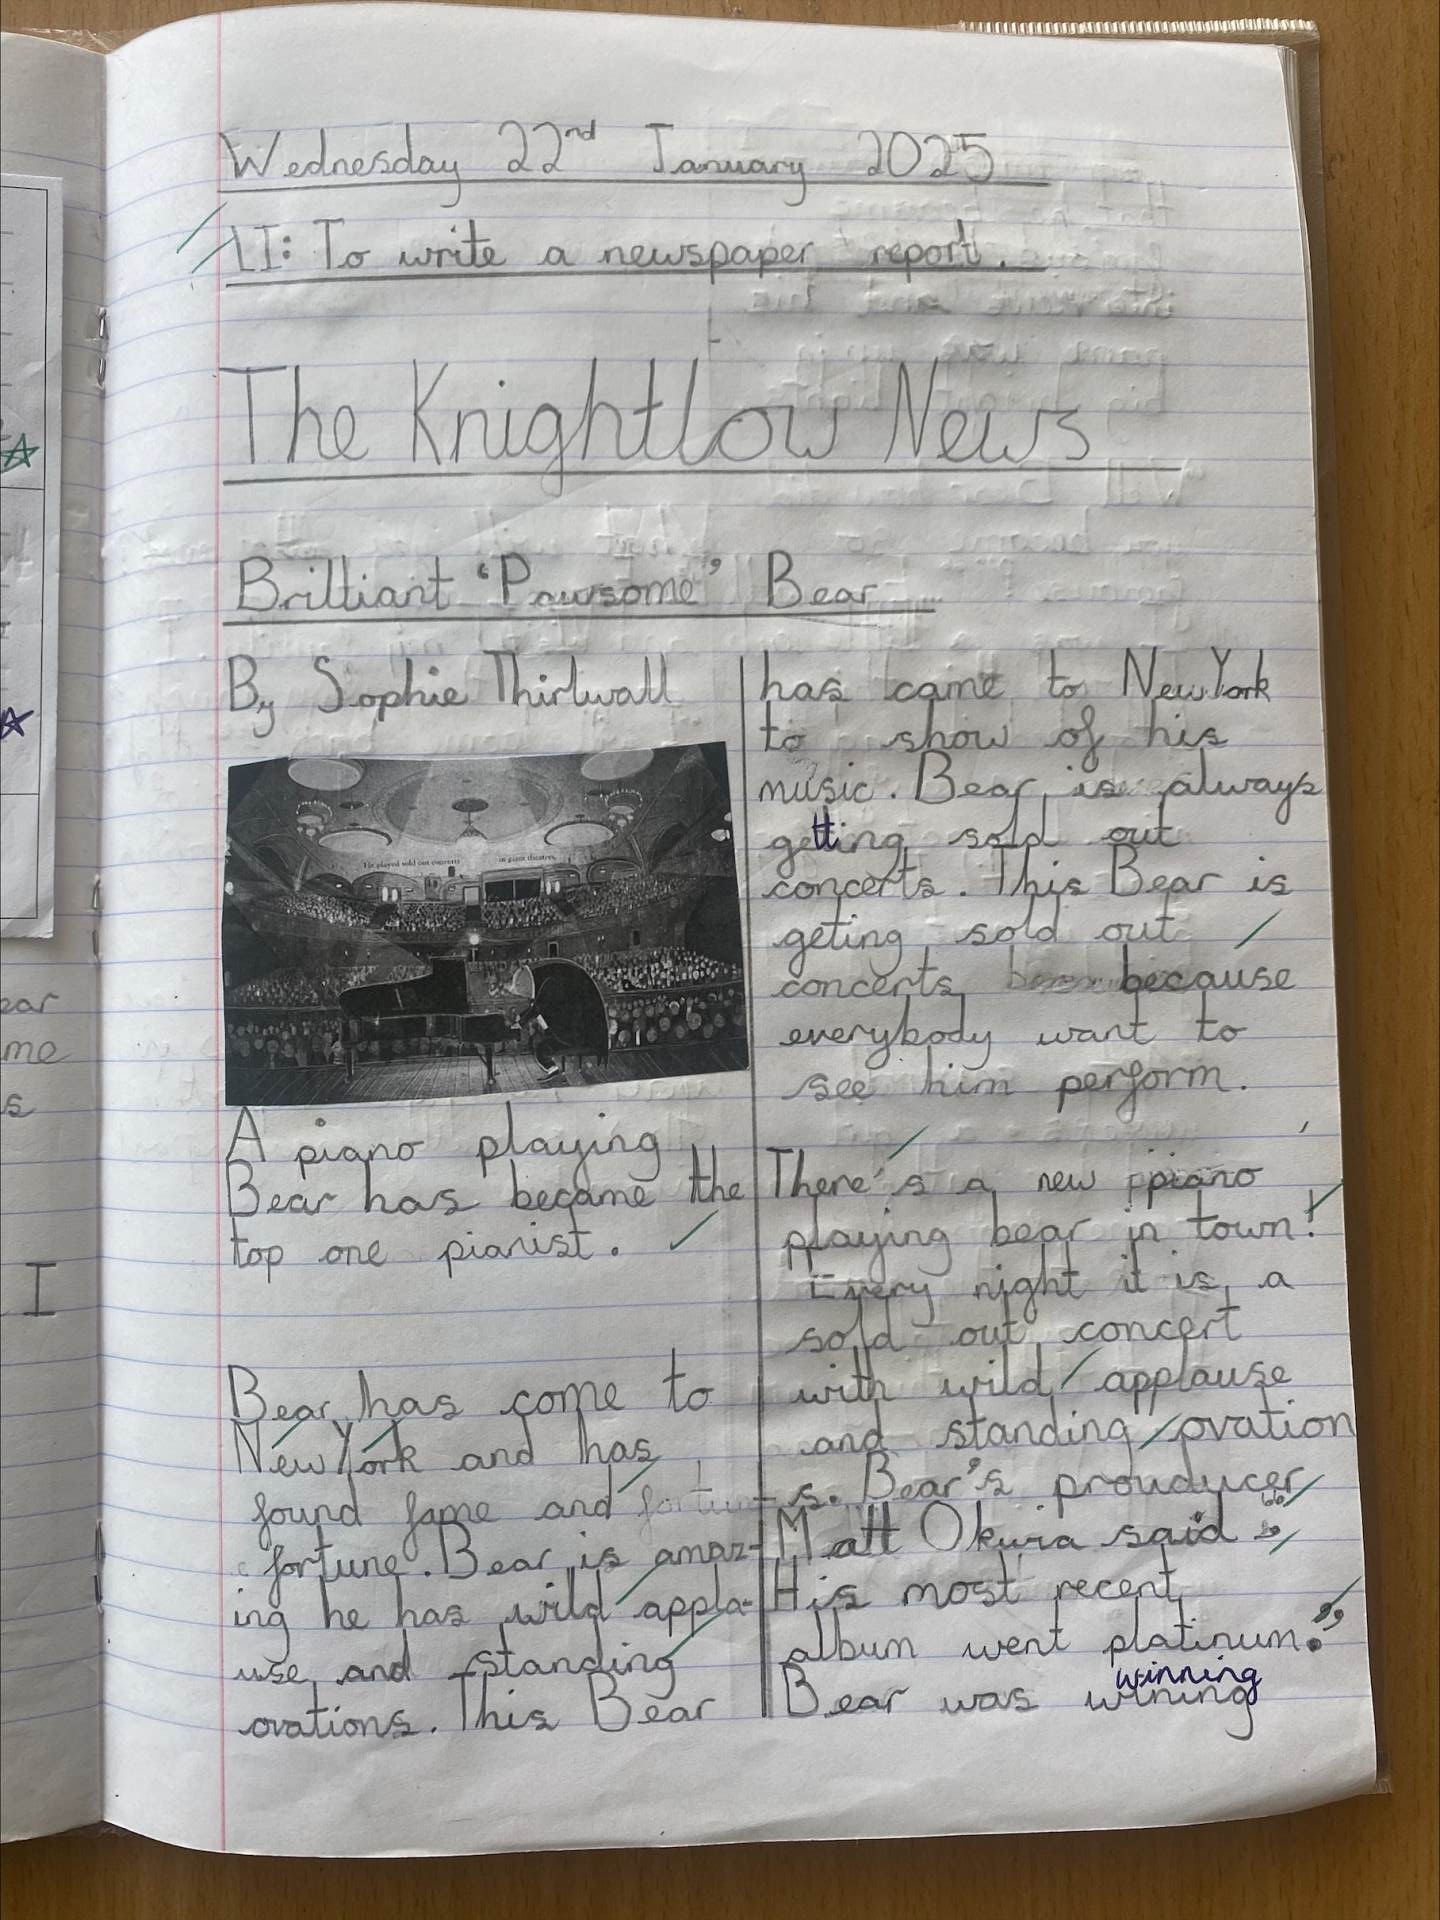 Wednesday 22nd January 2025
LI: To write a newspaper report.
The Knightlow News
Brilliant 'Pawsome' Bear
By Sophie Thirlwall
He played sold out concerts in giant theatres,
A piano playing
Bear has became the
top one pianist.
Bear has come to
New York and has
found fame and
fortune. Bear is amaz-
ing he has wild appla-
use and standing
ovations. This Bear
has came to New York
to show of his
music. Bear is always
getting sold out
concerts. This Bear is
geting sold out
concerts because
everybody want to
see him perform.
There's a new piano
playing bear in town!
Every night it is a
sold out concert
with wild applause
and standing ovation
s. Bear's prouducer
Matt Okuia said, "
His most recent
album went platinum."
winning
Bear was wining
ear
me
s
I